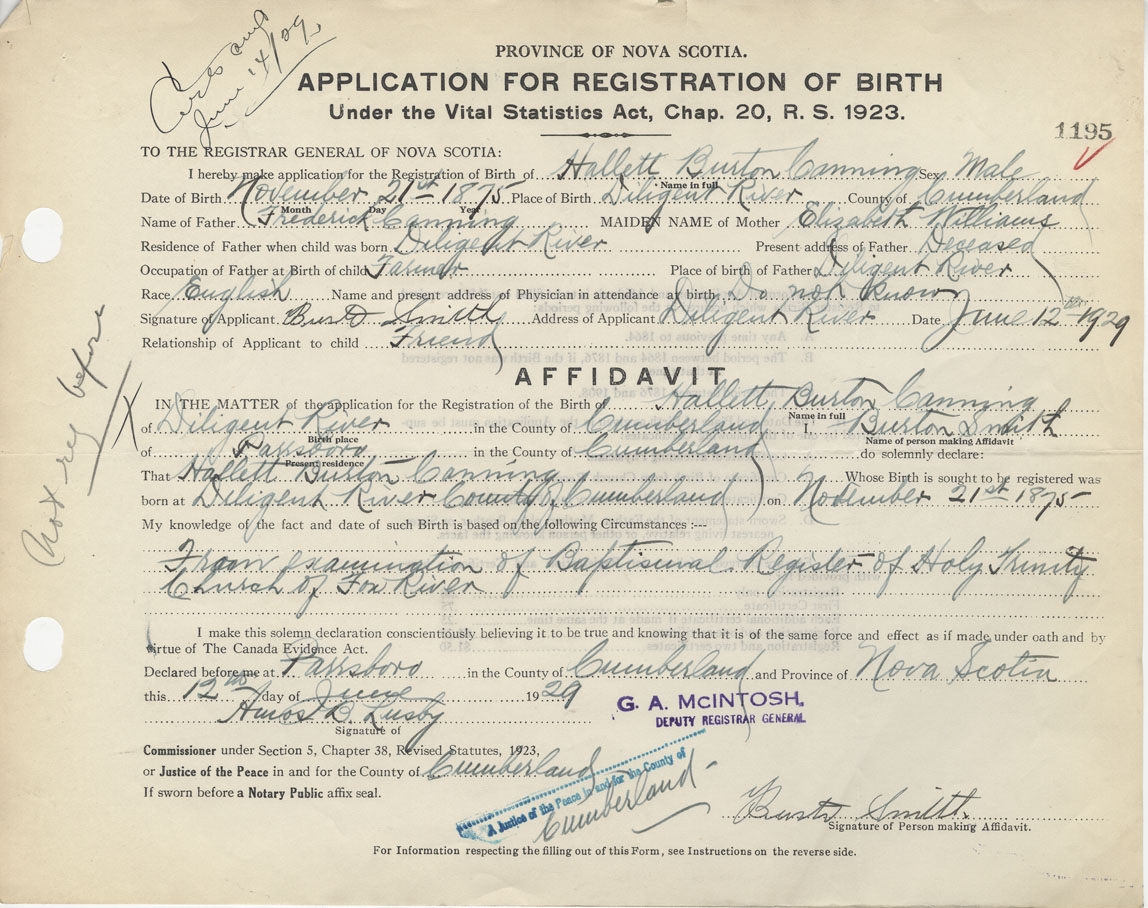 Certs only
June 14/29.
PROVINCE OF NOVA SCOTIA.
APPLICATION FOR REGISTRATION OF BIRTH
Under the Vital Statistics Act, Chap. 20, R. S. 1923.
1195
TO THE REGISTRAR GENERAL OF NOVA SCOTIA:
I hereby make application for the Registration of Birth of Hallett Burton Canning Sex Male
Name in full
Date of Birth November 21st 1875 Place of Birth Diligent River County of Cumberland
Month Day Year
Name of Father Frederick Canning MAIDEN NAME of Mother Elizabeth Williams
Residence of Father when child was born Diligent River Present address of Father Deceased
Occupation of Father at Birth of child Farmer Place of birth of Father Diligent River
Race English Name and present address of Physician in attendance at birth Do not know
Signature of Applicant Burto Smith Address of Applicant Diligent River Date June 12th 1929
Relationship of Applicant to child Friend
AFFIDAVIT
IN THE MATTER of the application for the Registration of the Birth of Hallett Burton Canning
Name in full
X of Diligent River in the County of Cumberland I, Burton Smith
Birth place Name of person making Affidavit
of Parrsboro in the County of Cumberland do solemnly declare:
Present residence
That Hallett Burton Canning Whose Birth is sought to be registered was
born at Diligent River County of Cumberland on November 21st 1875
My knowledge of the fact and date of such Birth is based on the following Circumstances :—
From examination of Baptismal Register of Holy Trinity
Church of Fox River
I make this solemn declaration conscientiously believing it to be true and knowing that it is of the same force and effect as if made under oath and by
virtue of The Canada Evidence Act.
Declared before me at Parrsboro in the County of Cumberland and Province of Nova Scotia
this 12th day of June 1929
Amos B. Lusby
Signature of
G. A. McINTOSH,
DEPUTY REGISTRAR GENERAL
Commissioner under Section 5, Chapter 38, Revised Statutes, 1923,
or Justice of the Peace in and for the County of Cumberland
If sworn before a Notary Public affix seal.
A Justice of the Peace in and for the County of
Cumberland
Burto Smith.
Signature of Person making Affidavit.
For Information respecting the filling out of this Form, see Instructions on the reverse side.
Not reg before